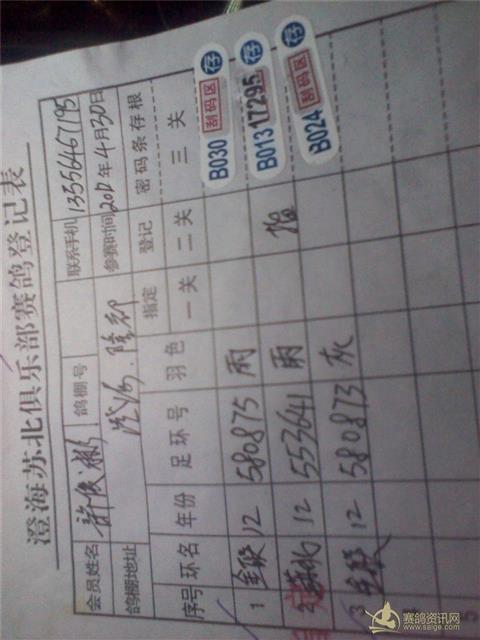 澄海苏北俱乐部赛鸽登记表
会员姓名 许俊 鸽棚号 联系手机 13556467195
鸽棚地址 隆都 参赛时间 年4月30日
序号 环名 年份 足环号 羽色 指定 登记 密码条存根
一关 二关 三关
1 12 580875 雨 B030 刮码区 存
2 苏北 12 553641 雨 B013 17295 存
3 12 580873 灰 B024 刮码区 存
5
赛鸽资讯网
www.saige.com